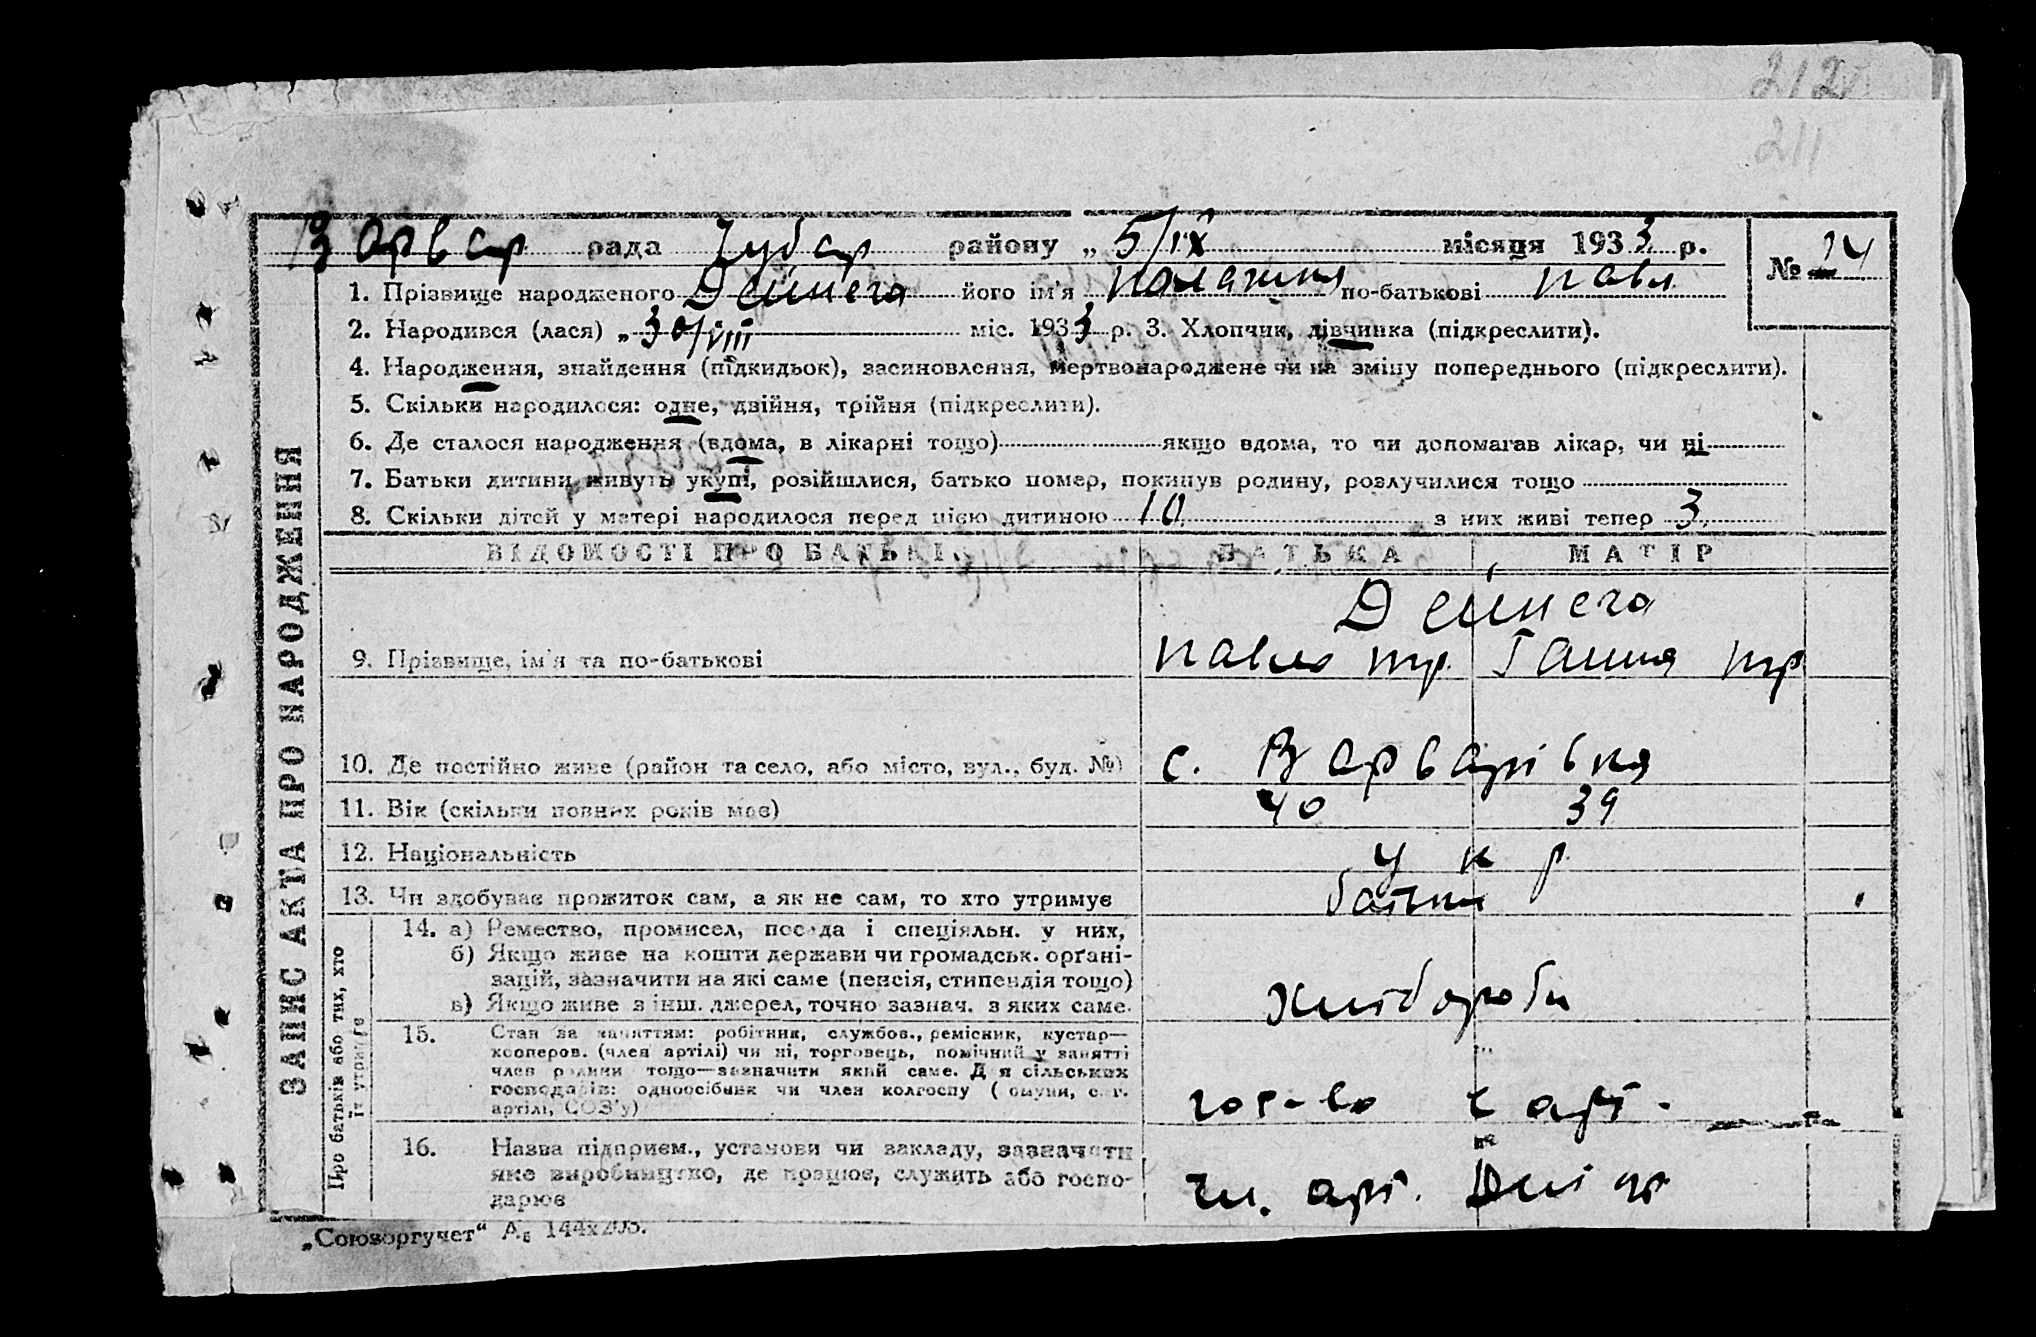 212
211
Варвар рада Чубар району „ 5/ІХ місяця 1933 р. № 14
1. Прізвище народженого Дейнега його ім'я Палажка по-батькові Павл
2. Народився (лася) „ 30/VIII міс. 1933 р. 3. Хлопчик, дівчинка (підкреслити).
4. Народження, знайдення (підкидьок), засиновлення, мертвонароджене чи на зміну попереднього (підкреслити).
5. Скільки народилося: одне, двійня, трійня (підкреслити).
6. Де сталося народження (вдома, в лікарні тощо) якщо вдома, то чи допомагав лікар, чи ні
7. Батьки дитини живуть укупі, розійшлися, батько помер, покинув родину, розлучилися тощо
8. Скільки дітей у матері народилося перед цією дитиною 10 з них живі тепер 3
ВІДОМОСТІ ПРО БАТЬКІВ БАТЬКА МАТІР
Дейнега
9. Прізвище, ім'я та по-батькові Павло тр. Ганна тр
10. Де постійно живе (район та село, або місто, вул., буд. №) с. Варварівка
11. Вік (скільки повних років має) 40 39
12. Національність укр
13. Чи здобуває прожиток сам, а як не сам, то хто утримує батьки
ЗАПИС АКТА ПРО НАРОДЖЕННЯ
Про батьків або тих, хто їх утримує
14. а) Ремество, промисел, посада і спеціяльн. у них,
б) Якщо живе на кошти держави чи громадськ. орґані-
зацій, зазначити на які саме (пенсія, стипендія тощо)
в) Якщо живе з інш. джерел, точно зазнач. з яких саме. Хлібороби
15. Стан за заняттям: робітник, службов., ремісник, кустар—
кооперов. (член артілі) чи ні, торговець, помічний у занятті
член родини тощо—зазначити який саме. Для сільських
господарів: одноосібник чи член колгоспу (комуни, с.-г.
артілі, СОЗ'у) гос-во с арт.
16. Назва підприєм., установи чи закладу, зазначити
яке виробництво, де працює, служить або госпо-
дарює чл. арт. Дніпр
„Союзоргучет“ А₅ 144х205.